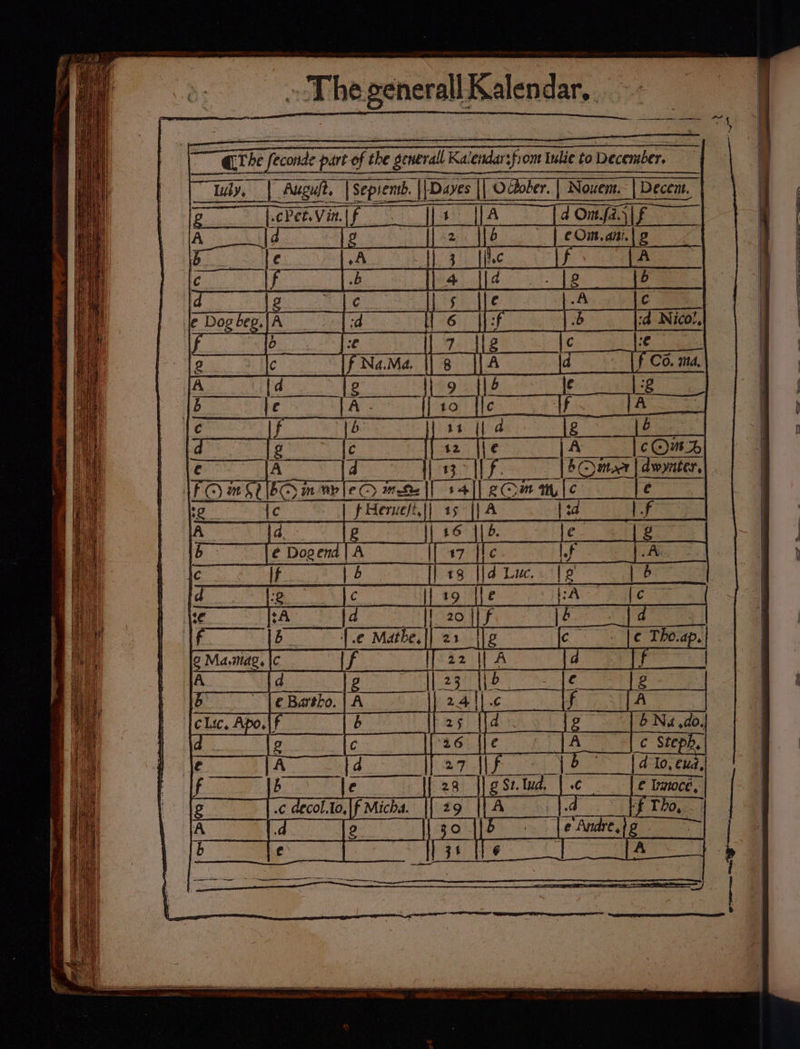 The generall Kalendar.
¶The seconde part of the generall Kalendar: from Iulie to December.
Iuly. | August. | Septemb. || Dayes || October. | Nouem. | Decem.
g | .c Pet. Vin. | f || 1 || A | d Om.sa. | f
A | d | g || 2 || b | e Om.ani. | g
b | e | .A || 3 || :c | f | A
c | f | .b || 4 || d | g | b
d | g | c || 5 || e | .A | c
e Dog beg. | A | :d || 6 || :f | .b | :d Nicol.
f | b | :e || 7 || g | c | :e
g | c | f Na.Ma. || 8 || A | d | f Co. ma.
A | d | g || 9 || b | e | :g
b | e | A || 10 || c | f | A
c | f | b || 11 || d | g | b
d | g | c || 12 || e | A | c ☉ in ♑
e | A | d || 13 || f | b ☉ in ♐ | dwynter.
f ☉ in ♌ | b ☉ in ♍ | e ☉ in ♎ || 14 || g ☉ in ♏ | c | e
:g | c | f Heruest. || 15 || A | :d | .f
A | d | g || 16 || b. | e | g
b | e Dogend | A || 17 || c | .f | .A
c | f | b || 18 || d Luc. | g | b
d | :g | c || 19 || e | :A | c
:e | :A | d || 20 || f | b | d
f | b | .e Mathe. || 21 || g | c | e Tho.ap.
g Ma.mag. | c | f || 22 || A | d | f
A | d | g || 23 || b | e | g
b | e Bartho. | A || 24 || .c | f | A
c Iac. Apo. | f | b || 25 || d | g | b Na.do.
d | g | c || 26 || e | A | c Steph.
e | A | d || 27 || f | b | d Io. eua.
f | b | e || 28 || g St. Iud. | .c | e Innocē.
g | .c decol.Io. | f Micha. || 29 || A | .d | f Tho.
A | .d | g || 30 || b | e Andre. | g
b | e | || 31 || c | | A